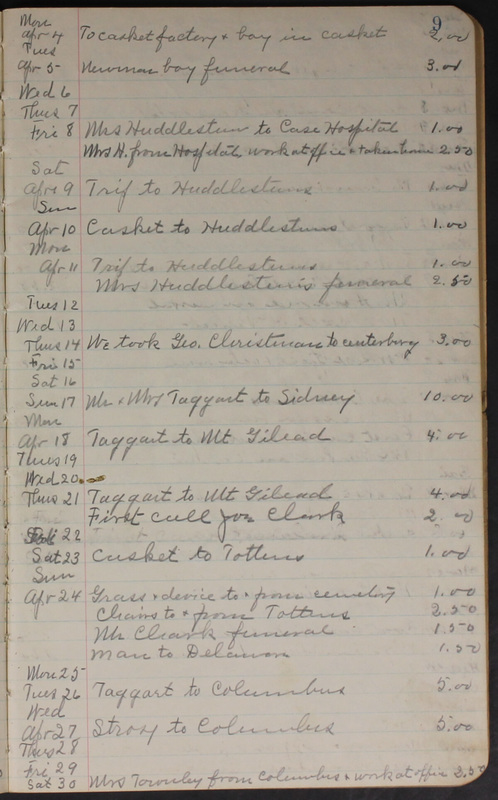 9
Mon
Apr 4 To casket factory & bay in casket 2.00
Tues
Apr 5 Newman boy funeral 3.00
Wed 6
Thurs 7
Fri 8 Mrs Huddlestun to Case Hospital 1.00
Mrs H. from Hospital, work at office & taken home 2.50
Sat
Apr 9 Trip to Huddlestuns 1.00
Sun
Apr 10 Casket to Huddlestuns 1.00
Mon
Apr 11 Trip to Huddlestuns 1.00
Mrs Huddlestun's funeral 2.50
Tues 12
Wed 13
Thurs 14 We took Geo. Christman to centerburg 3.00
Fri 15
Sat 16
Sun 17 Mr & Mrs Taggart to Sidney 10.00
Mon
Apr 18 Taggart to Mt Gilead 4.00
Thurs 19
Wed 20
Thurs 21 Taggart to Mt Gilead 4.00
First call Joe Clark 2.00
22
Sat 23 Casket to Tottens 1.00
Sun
Apr 24 Grass & device to & from cemetery 1.00
Chairs to & from Tottens 2.50
Mr Cleark funeral 1.50
Man to Delawar 1.50
Mon 25
Tues 26 Taggart to Columbus 5.00
Wed
Apr 27 Strosy to Columbus 5.00
Thurs 28
Fri 29
Sat 30 Mrs Townley from Columbus & work at office 2.50